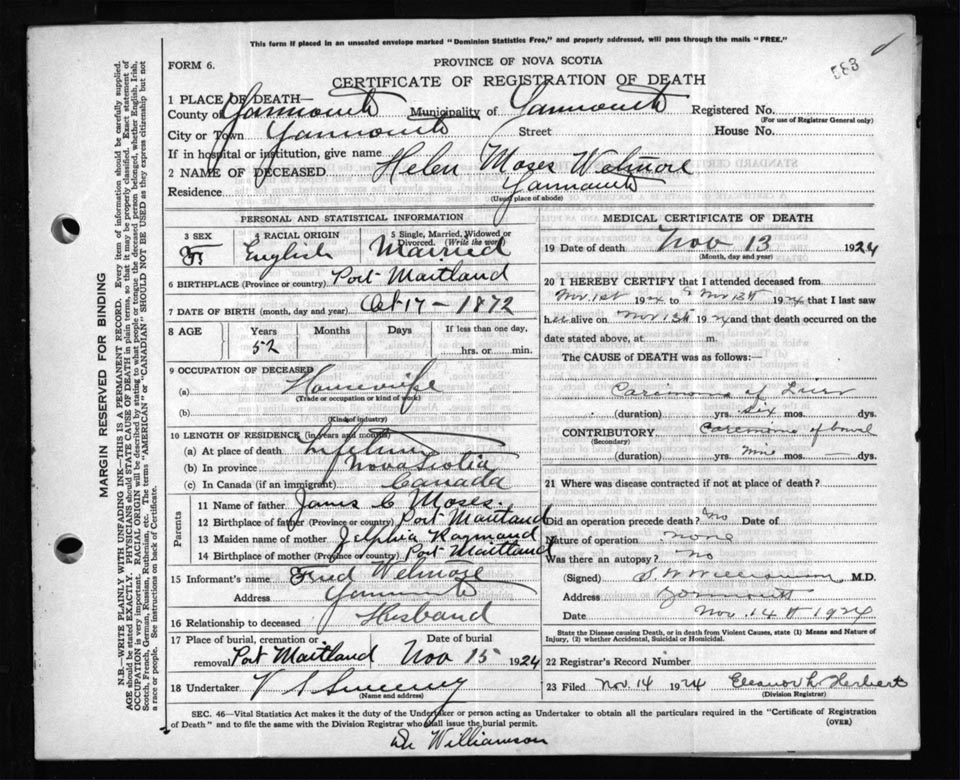 This form if placed in an unsealed envelope marked "Dominion Statistics Free," and properly addressed, will pass through the mails "FREE."
583
FORM 6.
PROVINCE OF NOVA SCOTIA
CERTIFICATE OF REGISTRATION OF DEATH
1 PLACE OF DEATH—
County of Yarmouth Municipality of Yarmouth Registered No.
(For use of Registrar General only)
City or Town Yarmouth Street House No.
If in hospital or institution, give name
2 NAME OF DECEASED Helen Moses Wetmore
Residence Yarmouth
(Usual place of abode)
MARGIN RESERVED FOR BINDING
N.B.—WRITE PLAINLY WITH UNFADING INK—THIS IS A PERMANENT RECORD. Every item of information should be carefully supplied.
AGE should be stated EXACTLY. PHYSICIANS should STATE CAUSE OF DEATH in plain terms, so that it may be properly classified. Exact statement of
OCCUPATION is very important. RACIAL ORIGIN will be described by stating to what people or tongue the deceased person belonged, whether English, Irish,
Scotch, French, German, Russian, Ruthenian, etc. The terms "AMERICAN" or "CANADIAN" SHOULD NOT BE USED as they express citizenship but not
a race or people. See instructions on back of Certificate.
PERSONAL AND STATISTICAL INFORMATION
3 SEX 4 RACIAL ORIGIN 5 Single, Married, Widowed or
Divorced. (Write the word)
F English Married
6 BIRTHPLACE (Province or country) Port Maitland
7 DATE OF BIRTH (month, day and year) Oct 17 - 1872
8 AGE Years Months Days If less than one day,
52 hrs. or min.
9 OCCUPATION OF DECEASED
(a) Housewife
(Trade or occupation or kind of work)
(b)
(Kind of industry)
10 LENGTH OF RESIDENCE (in years and months)
(a) At place of death Lifetime
(b) In province Nova Scotia
(c) In Canada (if an immigrant) Canada
Parents
11 Name of father James C Moses
12 Birthplace of father (Province or country) Port Maitland
13 Maiden name of mother Raymond
14 Birthplace of mother (Province or country) Port Maitland
15 Informant's name Fred Wetmore
Address Yarmouth
16 Relationship to deceased Husband
17 Place of burial, cremation or Date of burial
removal Port Maitland Nov 15 1924
18 Undertaker V S Sweeny
(Name and address)
MEDICAL CERTIFICATE OF DEATH
19 Date of death Nov 13 1924
(Month, day and year)
20 I HEREBY CERTIFY that I attended deceased from
Nov 1st 1924 to Nov 13th 1924 that I last saw
her alive on Nov 13th 1924 and that death occurred on the
date stated above, at m.
The CAUSE OF DEATH was as follows:—
Carcinoma of Liver
(duration) yrs. six mos. dys.
CONTRIBUTORY Carcinoma of bowel
(Secondary)
(duration) yrs. nine mos. — dys.
21 Where was disease contracted if not at place of death?
Did an operation precede death? no Date of
Nature of operation none
Was there an autopsy? No
(Signed) S W Williamson M.D.
Address Yarmouth
Date Nov. 14th 1924
State the Disease causing Death, or in death from Violent Causes, state (1) Means and Nature of
Injury, (2) whether Accidental, Suicidal or Homicidal.
22 Registrar's Record Number
23 Filed Nov. 14 1924 Eleanor L. Herbert
(Division Registrar)
SEC. 46—Vital Statistics Act makes it the duty of the Undertaker or person acting as Undertaker to obtain all the particulars required in the "Certificate of Registration
of Death" and to file the same with the Division Registrar who shall issue the burial permit. (OVER)
Dr Williamson